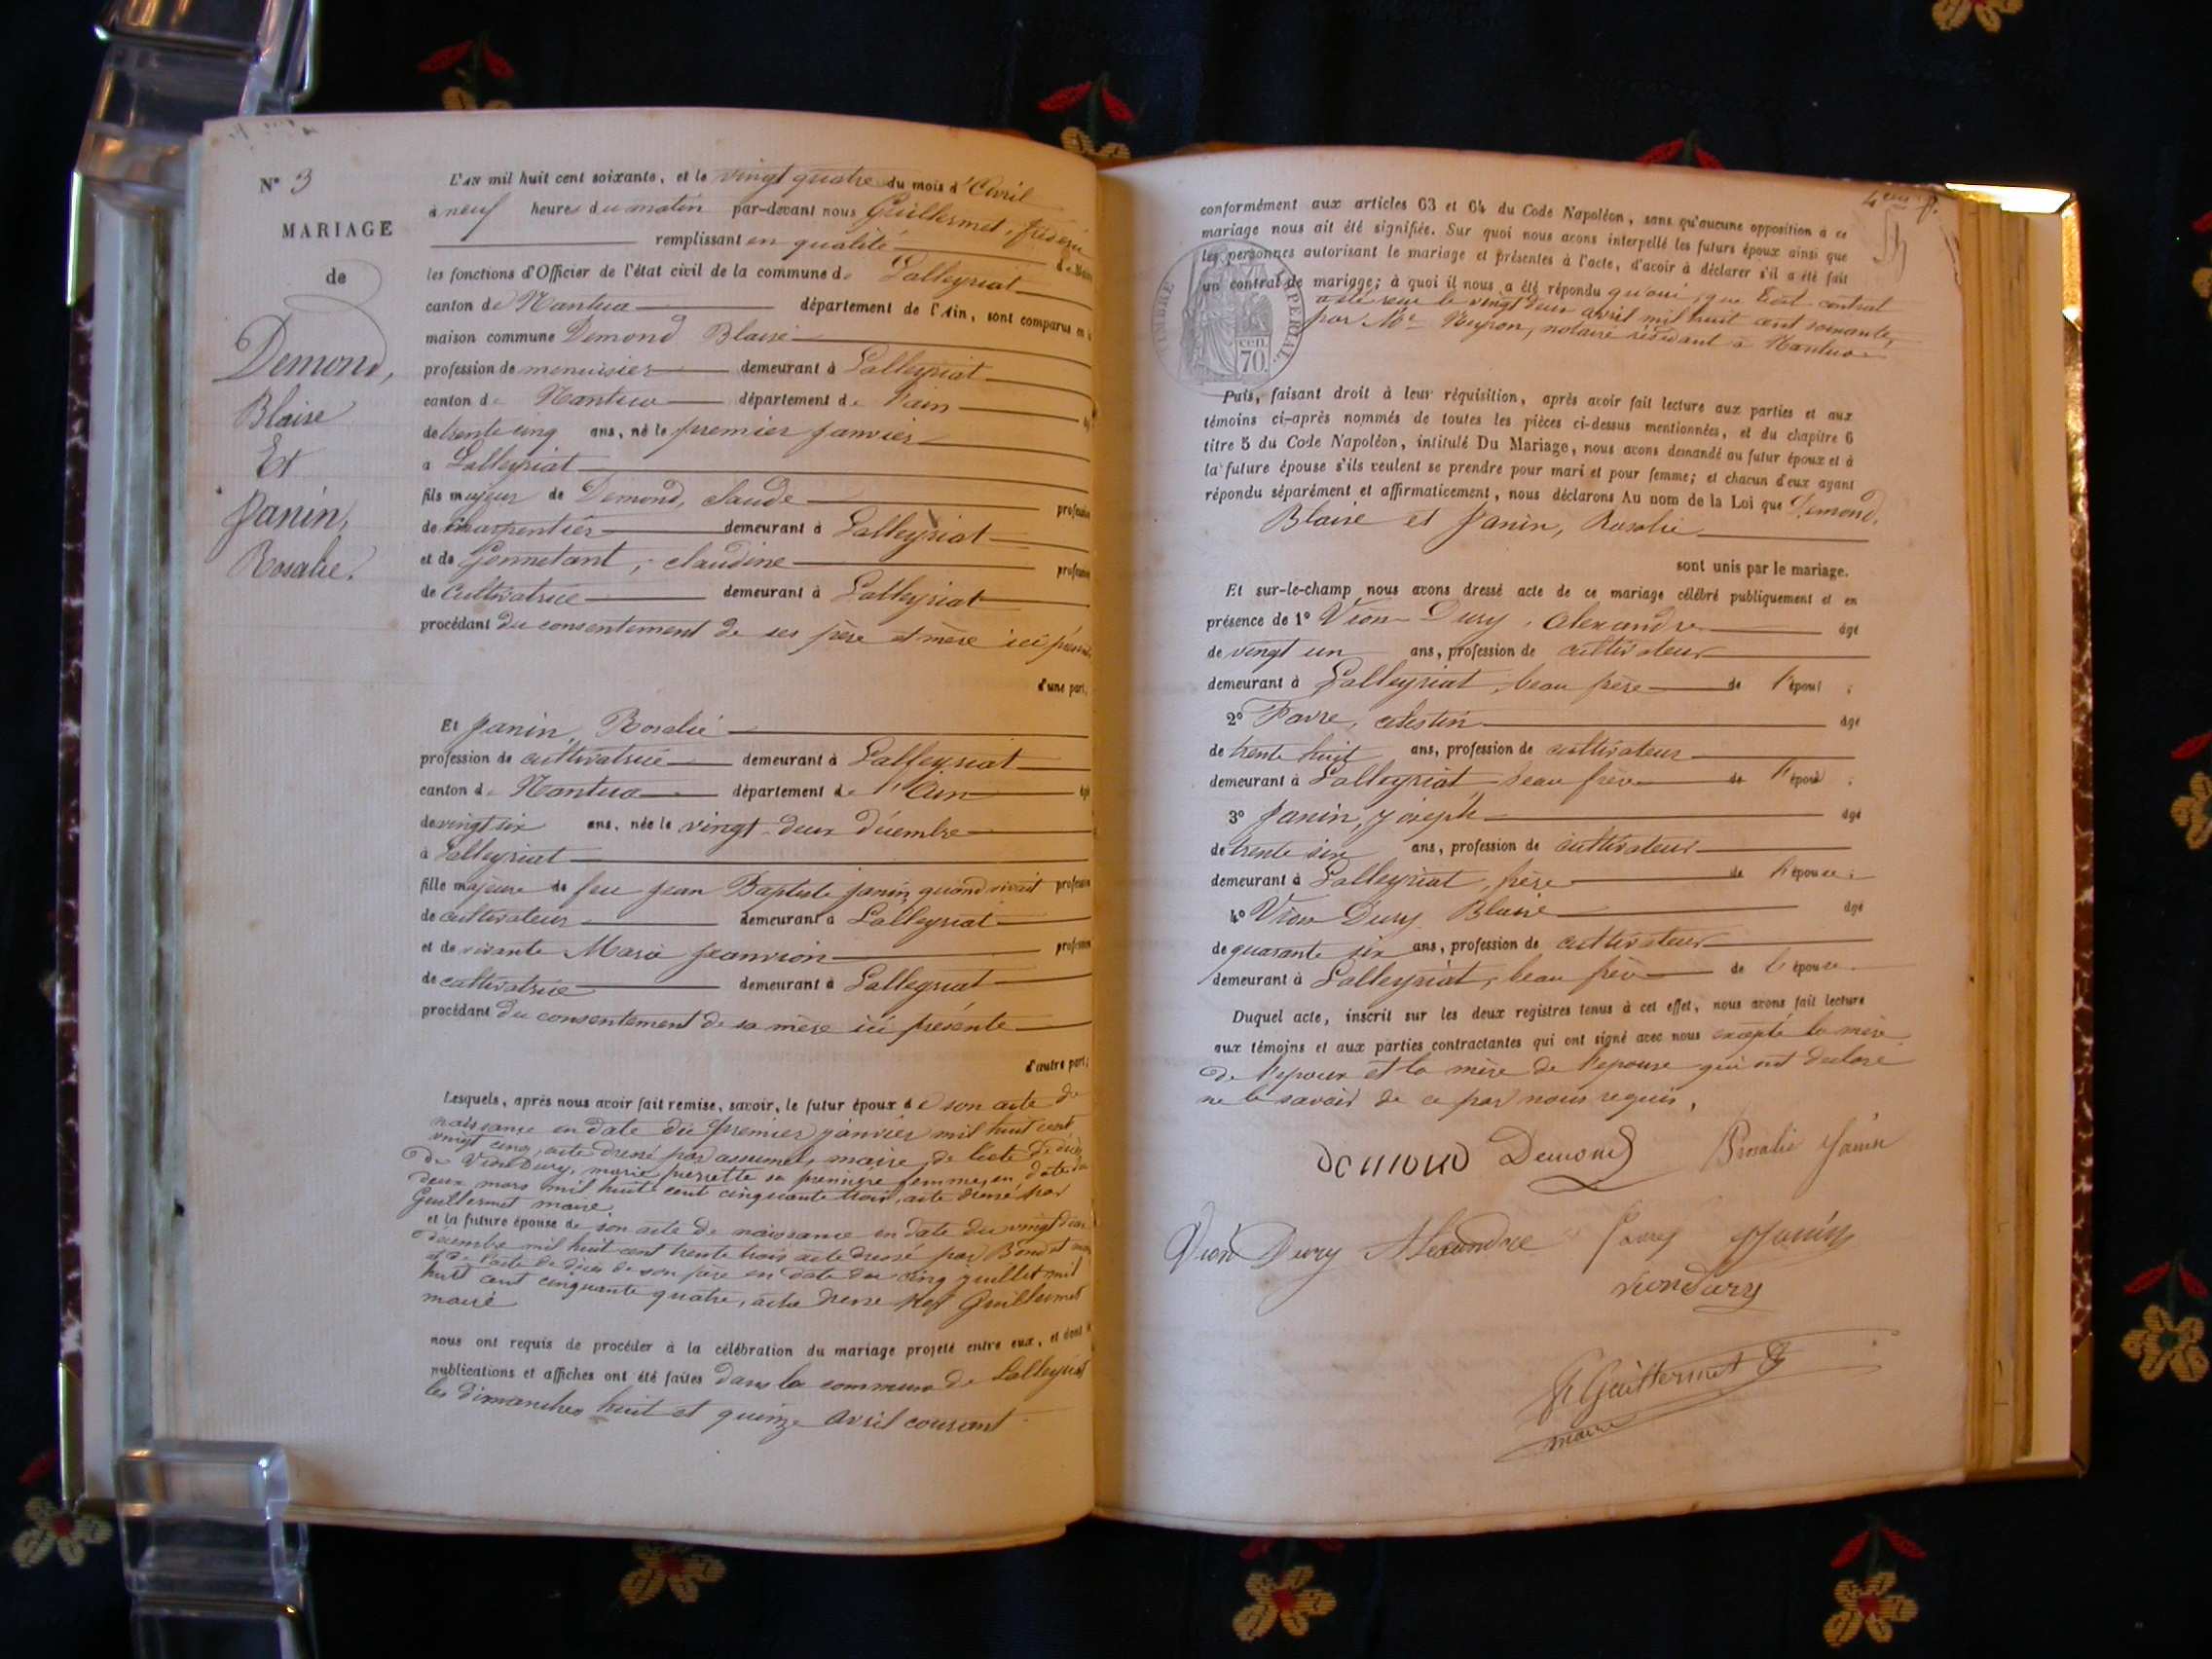 N° 3
MARIAGE
de
Demond,
Blaise
Et
Janin,
Rosalie.
L'AN mil huit cent soixante, et le vingt quatre du mois d'Avril
à neuf heures du matin par-devant nous Guillermet, fréderic
remplissant en qualité de Maire
les fonctions d'Officier de l'état civil de la commune de Lalleyriat
canton de Nantua département de l'Ain, sont comparus en la
maison commune Demond Blaise
profession de menuisier demeurant à Lalleyriat
canton de Nantua département de l'ain
de trente cinq ans, né le premier janvier
à Lalleyriat
fils majeur de Demond, claude profession
de charpentier demeurant à Lalleyriat
et de Gonnetant, claudine profession
de cultivatrice demeurant à Lalleyriat
procédant du consentement de ses père et mère ici présents
d'une part,
Et Janin, Rosalie
profession de cultivatrice demeurant à Lalleyriat
canton de Nantua département de l'Ain âgé
de vingt six ans, née le vingt-deux décembre
à Lalleyriat
fille majeure de feu Jean Baptiste Janin, quand vivait profession
de cultivateur demeurant à Lalleyriat
et de vivante Marie Jeanvion profession
de cultivatrice demeurant à Lalleyriat
procédant du consentement de sa mère ici présente
d'autre part;
Lesquels, après nous avoir fait remise, savoir, le futur époux de son acte de
naissance en date du premier janvier mil huit cent
vingt cinq, acte dressé par assumel, maire, de l'acte de décès
de Vion Dury, marie pierrette sa première femme, en date du
deux mars mil huit cent cinquante trois, acte dressé par
Guillermet maire
et la future épouse de son acte de naissance en date du vingt deux
décembre mil huit cent trente trois acte dressé par Bondet maire
et de l'acte de décès de son père en date du cinq juillet mil
huit cent cinquante quatre, acte dressé par Guillermet
maire
nous ont requis de procéder à la célébration du mariage projeté entre eux, et dont les
publications et affiches ont été faites dans la commune de Lalleyriat
les dimanches huit et quinze avril courant
4em f.
conformément aux articles 63 et 64 du Code Napoléon, sans qu'aucune opposition à ce
mariage nous ait été signifiée. Sur quoi nous avons interpellé les futurs époux ainsi que
les personnes autorisant le mariage et présentes à l'acte, d'avoir à déclarer s'il a été fait
un contrat de mariage; à quoi il nous a été répondu qu'oui, que ledit contrat
a été reçu le vingt deux avril mil huit cent soixante,
par Me Neyron, notaire résidant à Nantua
TIMBRE IMPERIAL
70.
Puis, faisant droit à leur réquisition, après avoir fait lecture aux parties et aux
témoins ci-après nommés de toutes les pièces ci-dessus mentionnées, et du chapitre 6
titre 5 du Code Napoléon, intitulé Du Mariage, nous avons demandé au futur époux et à
la future épouse s'ils veulent se prendre pour mari et pour femme; et chacun d'eux ayant
répondu séparément et affirmativement, nous déclarons Au nom de la Loi que Demond,
Blaise et Janin, Rosalie
sont unis par le mariage.
Et sur-le-champ nous avons dressé acte de ce mariage célébré publiquement et en
présence de 1° Vion-Dury, Alexandre âgé
de vingt un ans, profession de cultivateur
demeurant à Lalleyriat, beau frère de l'époux ;
2° Favre, celestin âgé
de trente huit ans, profession de cultivateur
demeurant à Lalleyriat beau frère de l'époux ;
3° Janin, joseph âgé
de trente six ans, profession de cultivateur
demeurant à Lalleyriat, frère de l'épouse ;
4° Vion Dury Blaise âgé
de quarante six ans, profession de cultivateur
demeurant à Lalleyriat, beau frère de l'épouse.
Duquel acte, inscrit sur les deux registres tenus à cet effet, nous avons fait lecture
aux témoins et aux parties contractantes qui ont signé avec nous excepté la mère
de l'époux et la mère de l'épouse qui ont déclaré
ne le savoir de ce par nous requis.
Demond Demond Rosalie Janin
Vion Dury Alexandre Favre Janin
vion dury
F Guillermet
maire